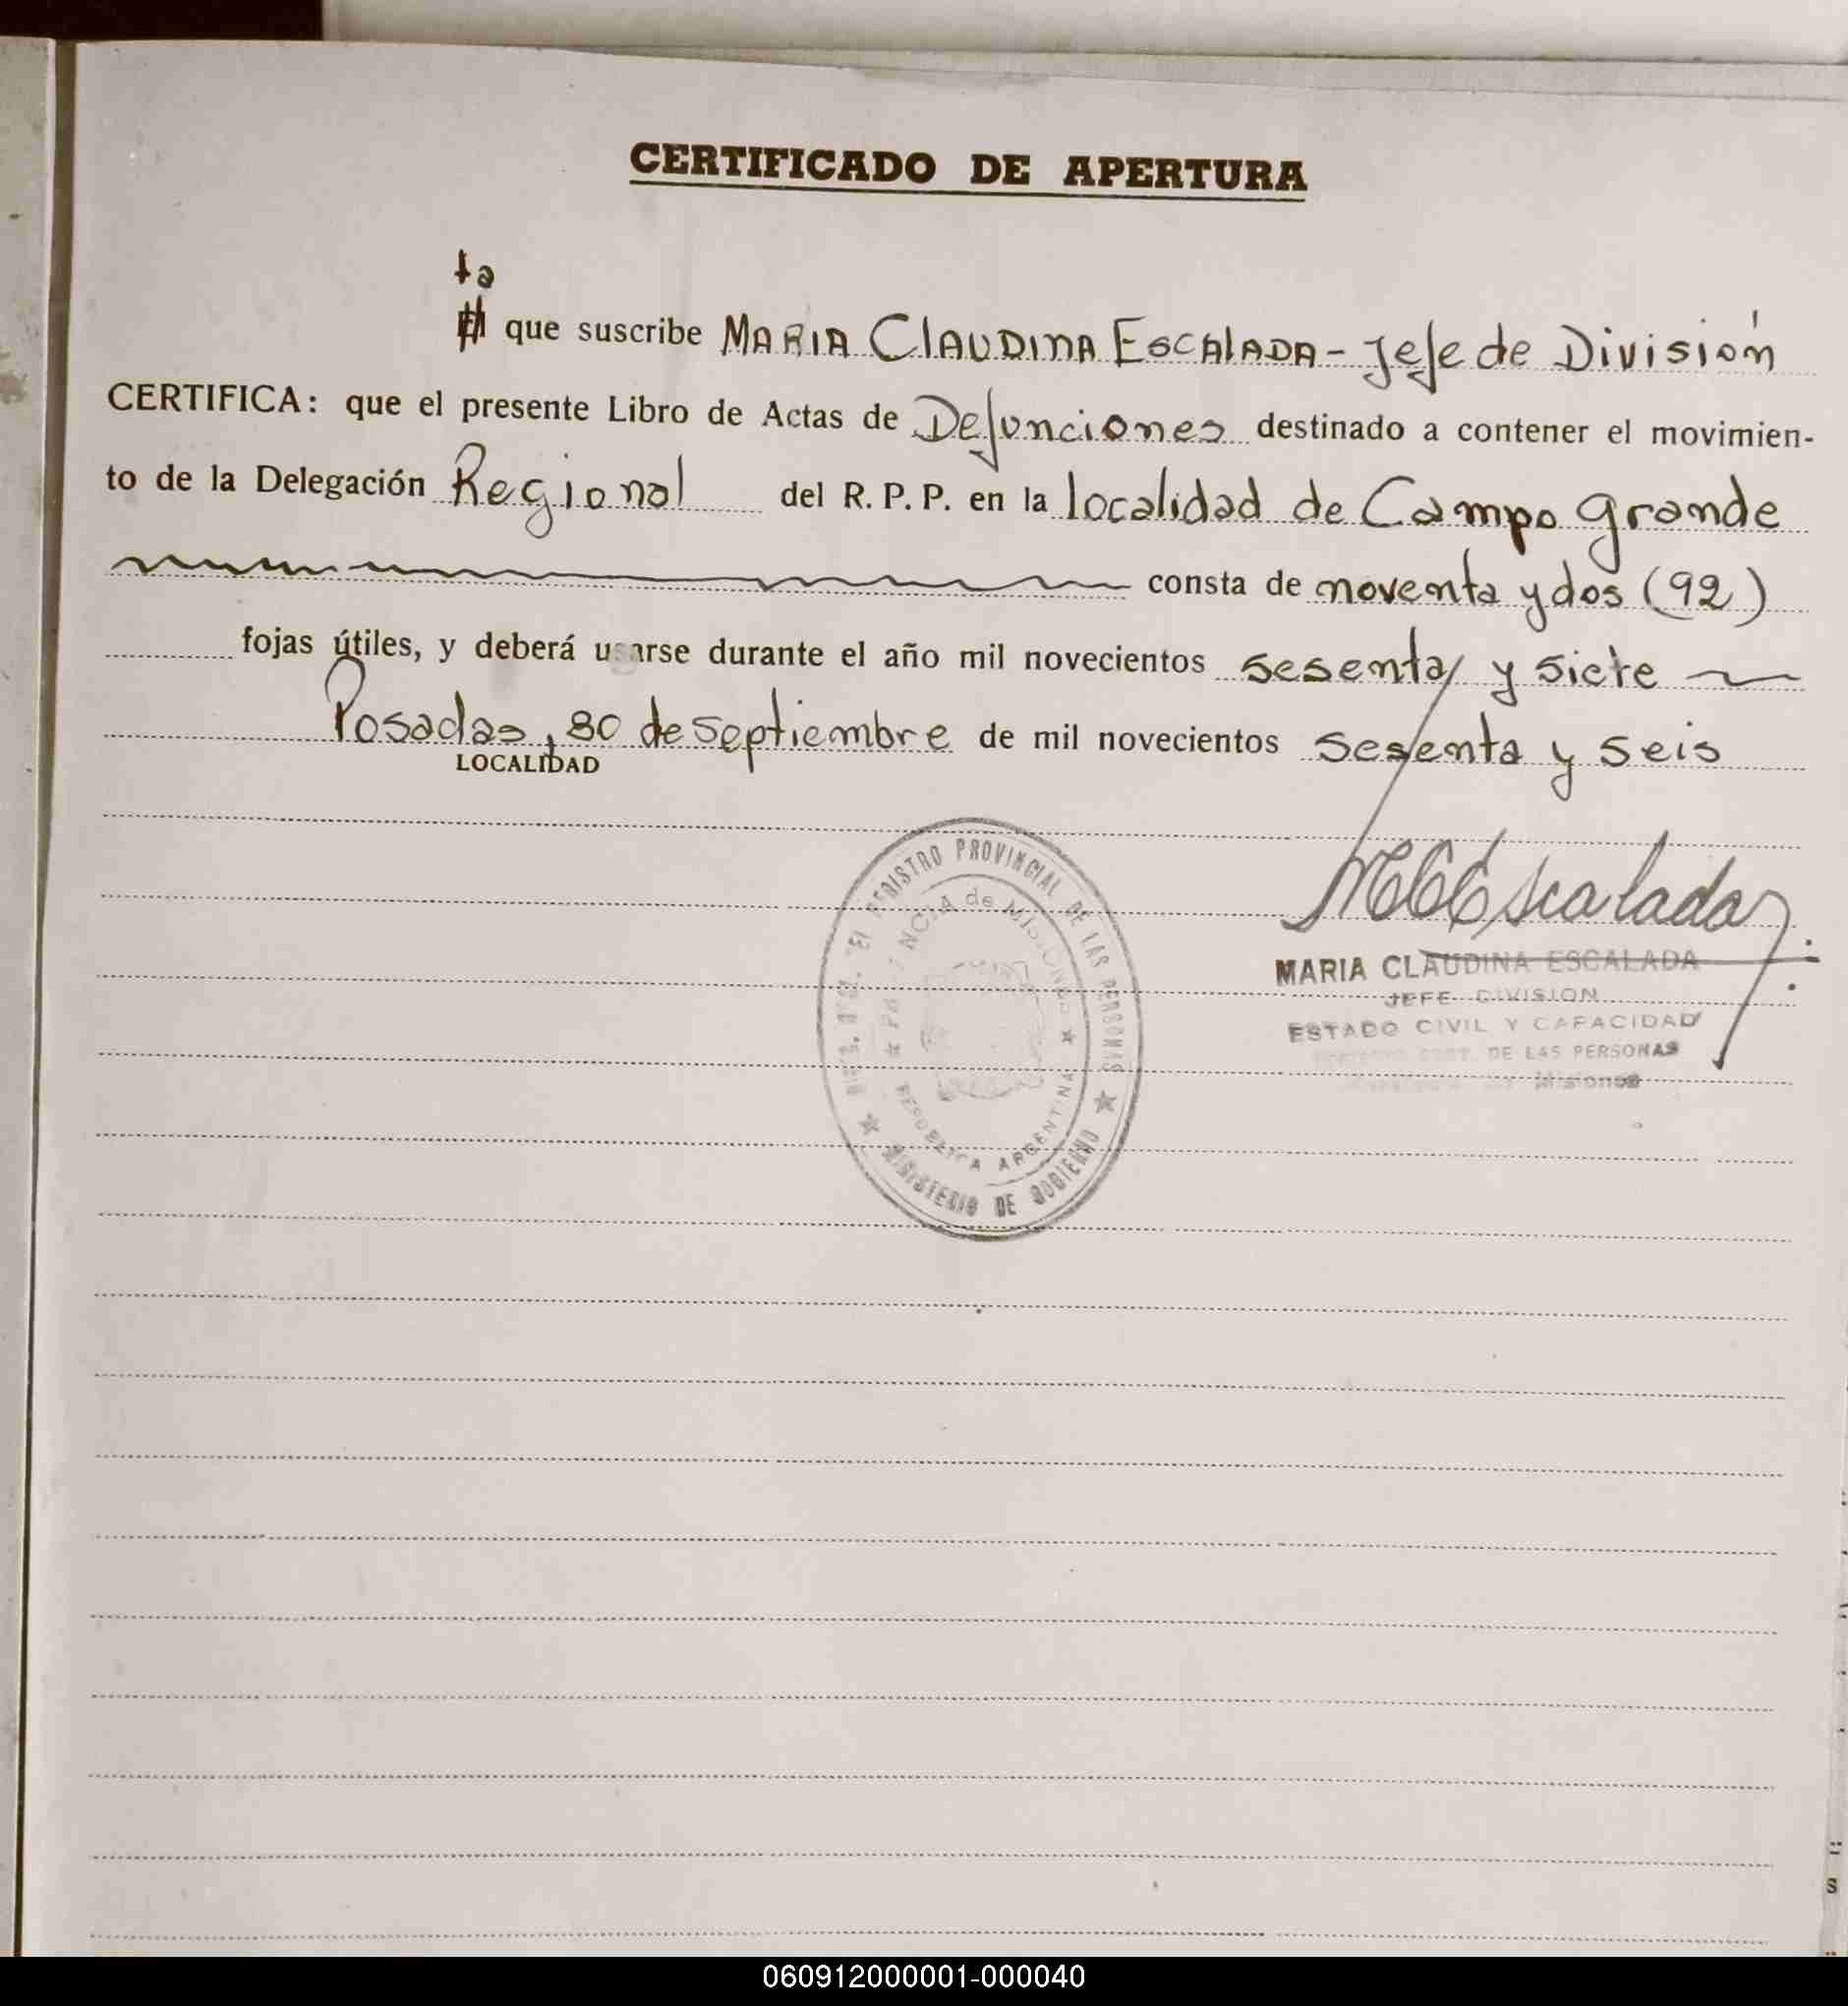 CERTIFICADO DE APERTURA
la
El que suscribe MARIA ClAUDINA ESCAlADA - Jefe de División
CERTIFICA: que el presente Libro de Actas de Defunciones destinado a contener el movimien-
to de la Delegación Regional del R. P. P. en la localidad de Campo grande
consta de noventa y dos (92)
fojas útiles, y deberá usarse durante el año mil novecientos sesenta y siete
Posadas, 30 de septiembre de mil novecientos sesenta y seis
LOCALIDAD
REGISTRO PROVINCIAL DE LAS PERSONAS
PROVINCIA de Misiones
REPUBLICA ARGENTINA
MINISTERIO DE GOBIERNO
MCEscalada
MARIA CLAUDINA ESCALADA
JEFE DIVISION
ESTADO CIVIL Y CAPACIDAD
DE LAS PERSONAS
Misiones
060912000001-000040